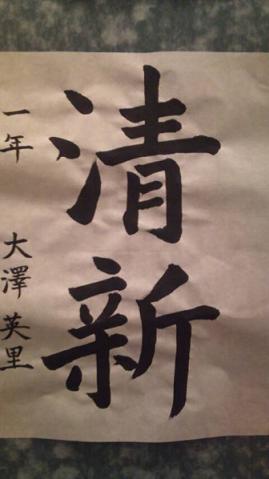 清新
一年 大澤英里